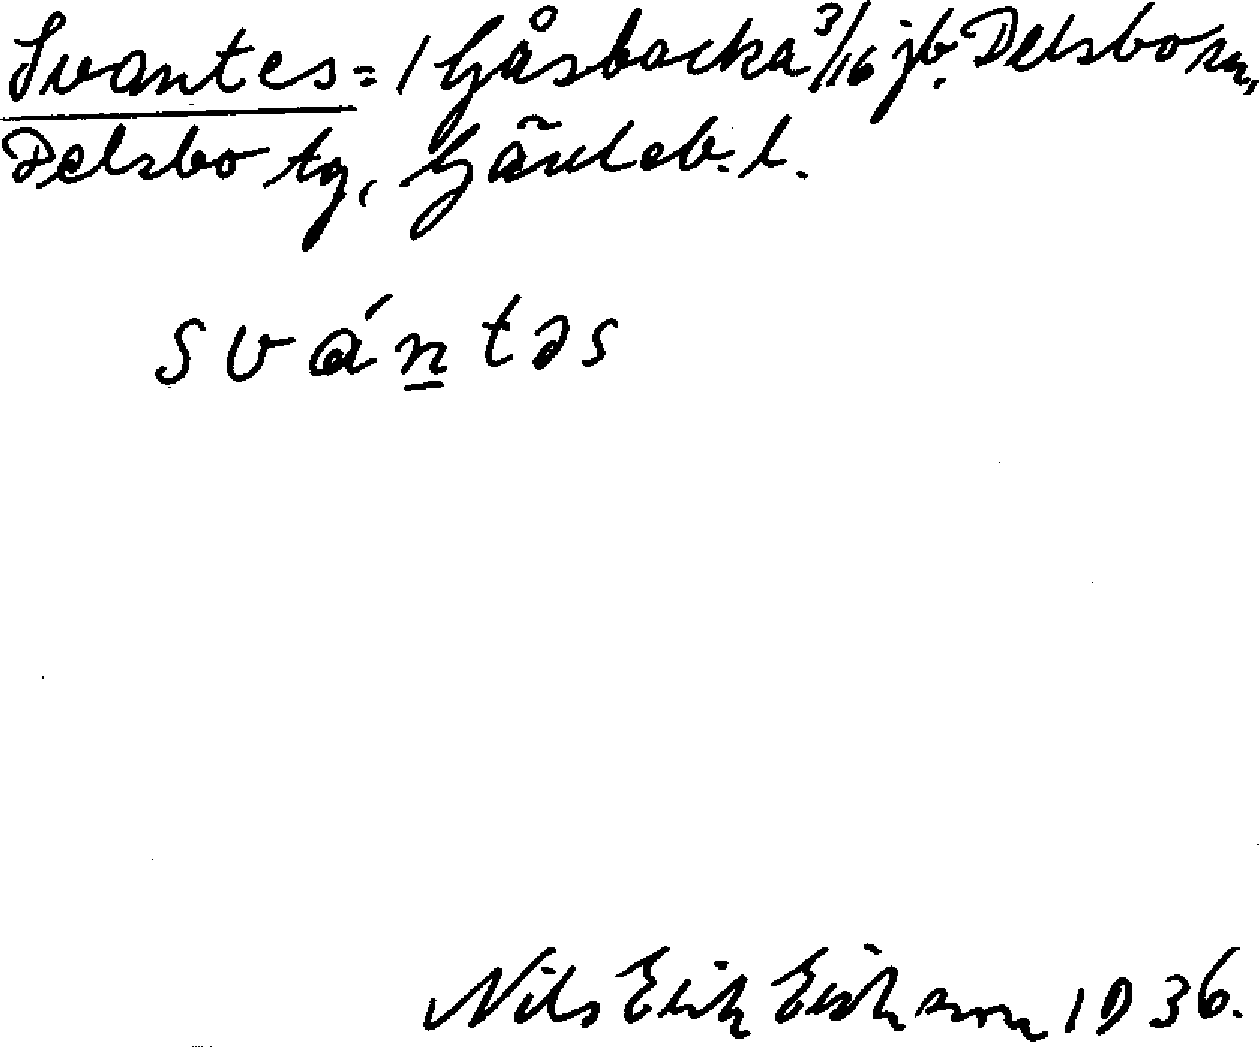 Svantes = 1 Gåsbacka 3/16 jb. Delsbo sn,
Delsbo tg, Gävleb. l.
sván̲təs
Nils Erik Erikson 1936.